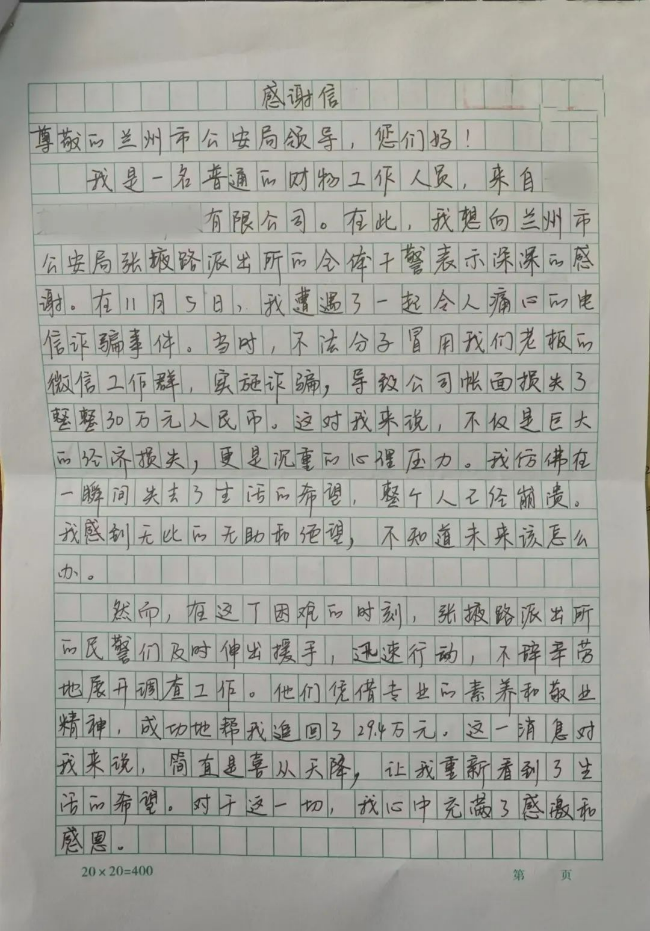 感谢信
尊敬的兰州市公安局领导，您们好！
我是一名普通的财物工作人员，来自
有限公司。在此，我想向兰州市
公安局张掖路派出所的全体干警表示深深的感
谢。在11月5日，我遭遇了一起令人痛心的电
信诈骗事件。当时，不法分子冒用我们老板的
微信工作群，实施诈骗，导致公司帐面损失了
整整30万元人民币。这对我来说，不仅是巨大
的经济损失，更是沉重的心理压力。我仿佛在
一瞬间失去了生活的希望，整个人已经崩溃。
我感到无比的无助和绝望，不知道未来该怎么
办。
然而，在这个困难的时刻，张掖路派出所
的民警们及时伸出援手，迅速行动，不辞辛劳
地展开调查工作。他们凭借专业的素养和敬业
精神，成功地帮我追回了29.4万元。这一消息对
我来说，简直是喜从天降，让我重新看到了生
活的希望。对于这一切，我心中充满了感激和
感恩。
20×20=400
第 页